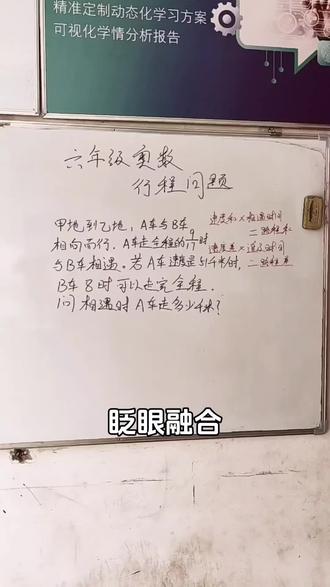 精准定制动态化学习方案
可视化学情分析报告
六年级奥数
行程问题
甲地到乙地，A车与B车
相向而行。A车走全程的9/17时
与B车相遇。若A车速度是51千米/时，
B车8时可以走完全程。
问相遇时A车走多少千米？
速度和×相遇时间
=路程和
速度差×追及时间
=路程差
眨眼融合